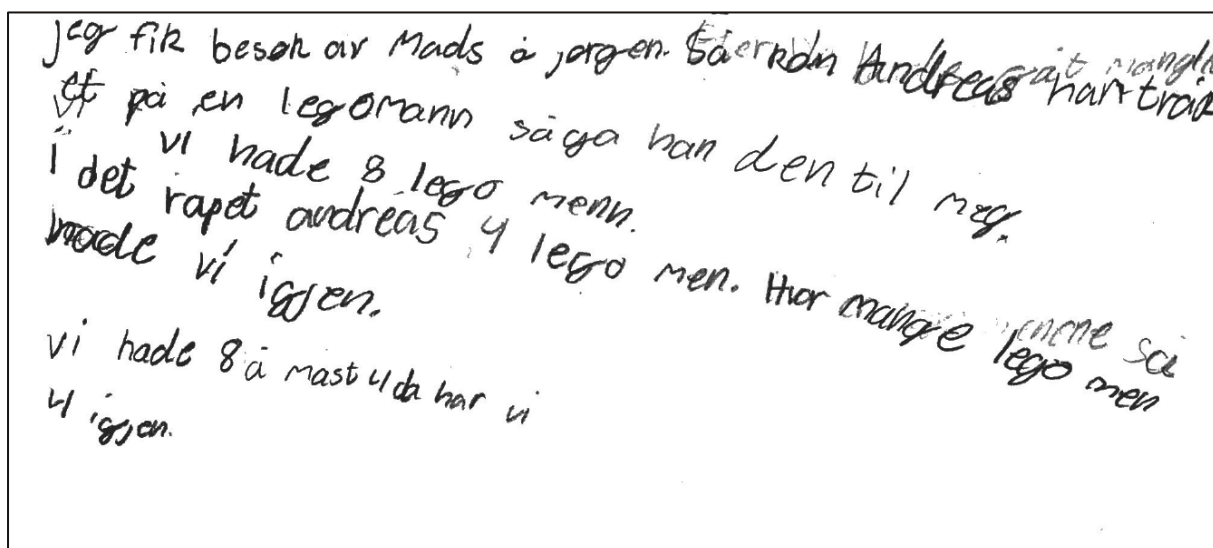 jeg fik besøk av Mads å jørgen. Så kån Andreas han tråk
et på en legomann såga han den til meg.
vi hade 8 lego menn.
i det rapet andreas 4 lego men. Hvor mange lego men
hade vi igjen.
vi hade 8 å mast 4 da har vi
4 igjen.